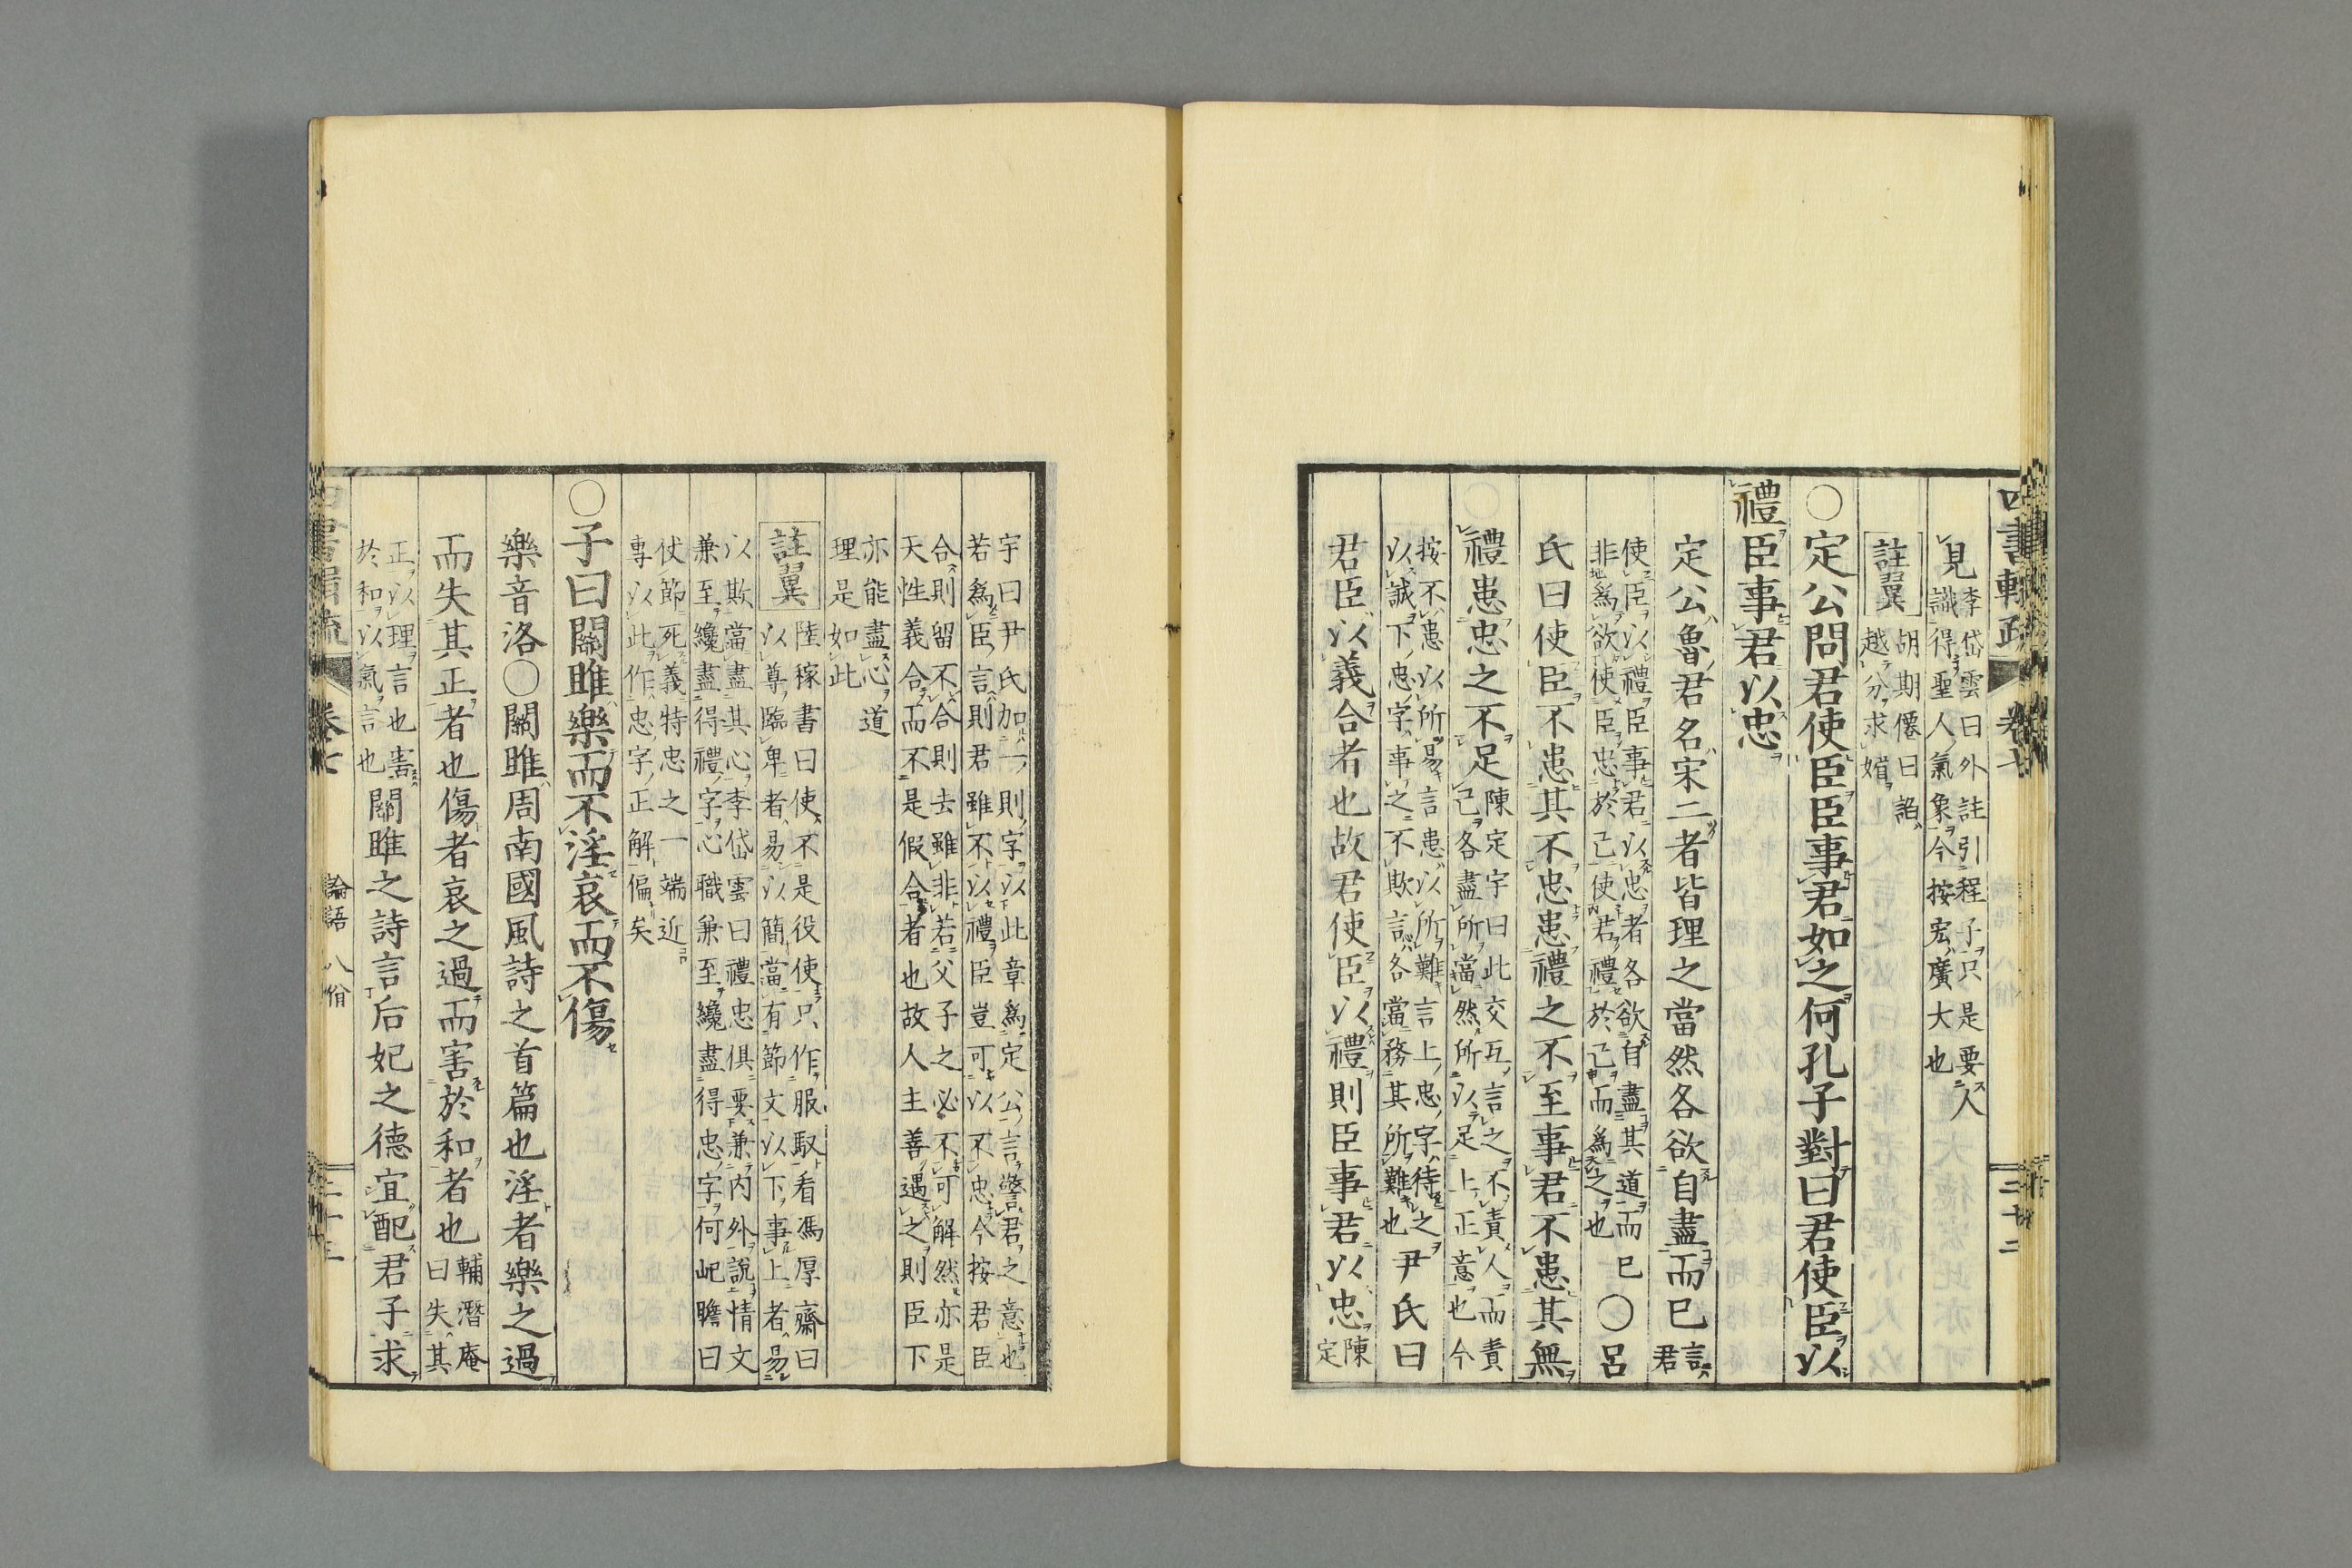 四書輯疏 卷七 三十二
見 李岱雲曰外註引程子只是要人
識得聖人氣象今按宏廣大也
註翼 胡期僊曰諂
越分求媚
○定公問君使臣臣事君如之何孔子對曰君使臣以
禮臣事君以忠
定公魯君名宋二者皆理之當然各欲自盡而已 言
君
使臣以禮臣事君以忠者各欲自盡其道而已○呂
非爲欲使臣忠於己使君禮於己而爲之也
氏曰使臣不患其不忠患禮之不至事君不患其無
禮患忠之不足 陳定宇曰此交互言之不責人而責
己各盡所當然所以足上正意也今
按不患以所易言患以所難言上忠字待之 尹氏曰
以誠下忠字事之不欺言各當務其所難也
君臣以義合者也故君使臣以禮則臣事君以忠 陳
定
宇曰尹氏加一則字以此章爲定公言警君之意也
若爲臣言則君雖不以禮臣豈可以不忠今按君臣
合則留不合則去雖非若父子之必不可解然亦是
天性義合而不是假合者也故人主善遇之則臣下
亦能盡心道
理是如此
註翼 陸稼書曰使不是役使只作服馭看馮厚齋曰
以尊臨卑者易以簡當有節文以下事上者易
以欺當盡其心李岱雲曰禮忠俱要兼內外說情文
兼至纔盡得禮字心職兼至纔盡得忠字何屺瞻曰
仗節死義特忠之一端近
專以此作忠字正解偏矣
○子曰關雎樂而不淫哀而不傷
樂音洛○關雎周南國風詩之首篇也淫者樂之過
而失其正者也傷者哀之過而害於和者也 輔潛庵
曰失其
正以理言也害 關雎之詩言后妃之德宜配君子求
於和以氣言也
四書輯疏 卷七 論語 八佾 三十三